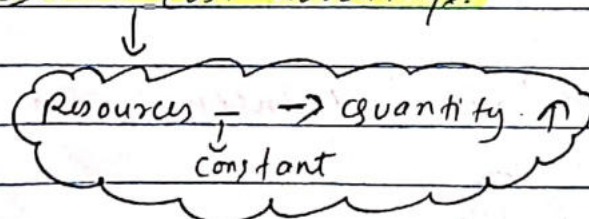 Resources – → Quantity. ↑
Constant